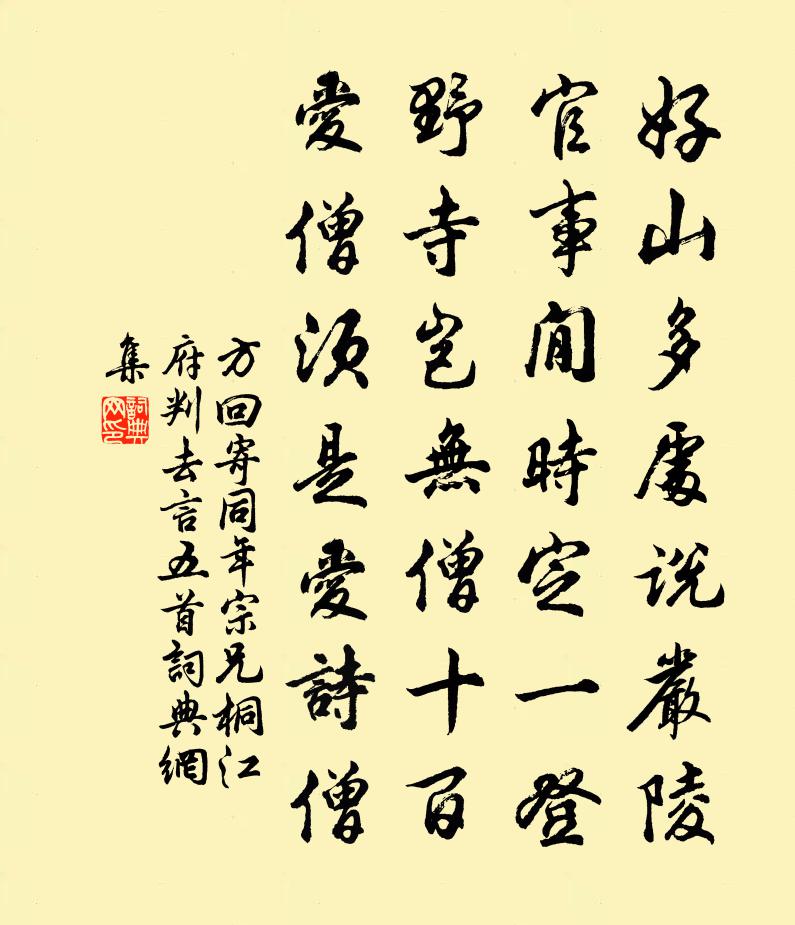 好山多處說嚴陵
官事閒時定一登
野寺豈無僧十百
愛僧須是愛詩僧
方回寄同年宗兄桐江
府判去言五首詞典網
集
詞典
网印